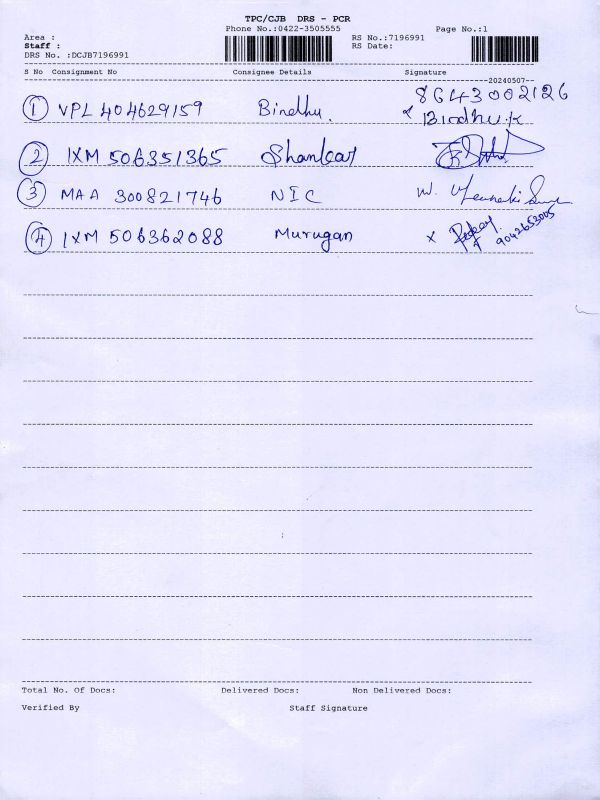 TPC/CJB DRS - PCR
Phone No.:0422-3505555
Page No.:1
Area :
RS No.:7196991
Staff :
RS Date:
DRS No. :DCJB7196991
S No Consignment No Consignee Details Signature
20240507
8643002126
1 VPL 404629159 Bindhu. Bindhu.K
2 IXM 506351365 Shankar
3 MAA 300821746 NIC
4 IXM 506362088 Murugan x 9042653005
Total No. Of Docs: Delivered Docs: Non Delivered Docs:
Verified By Staff Signature